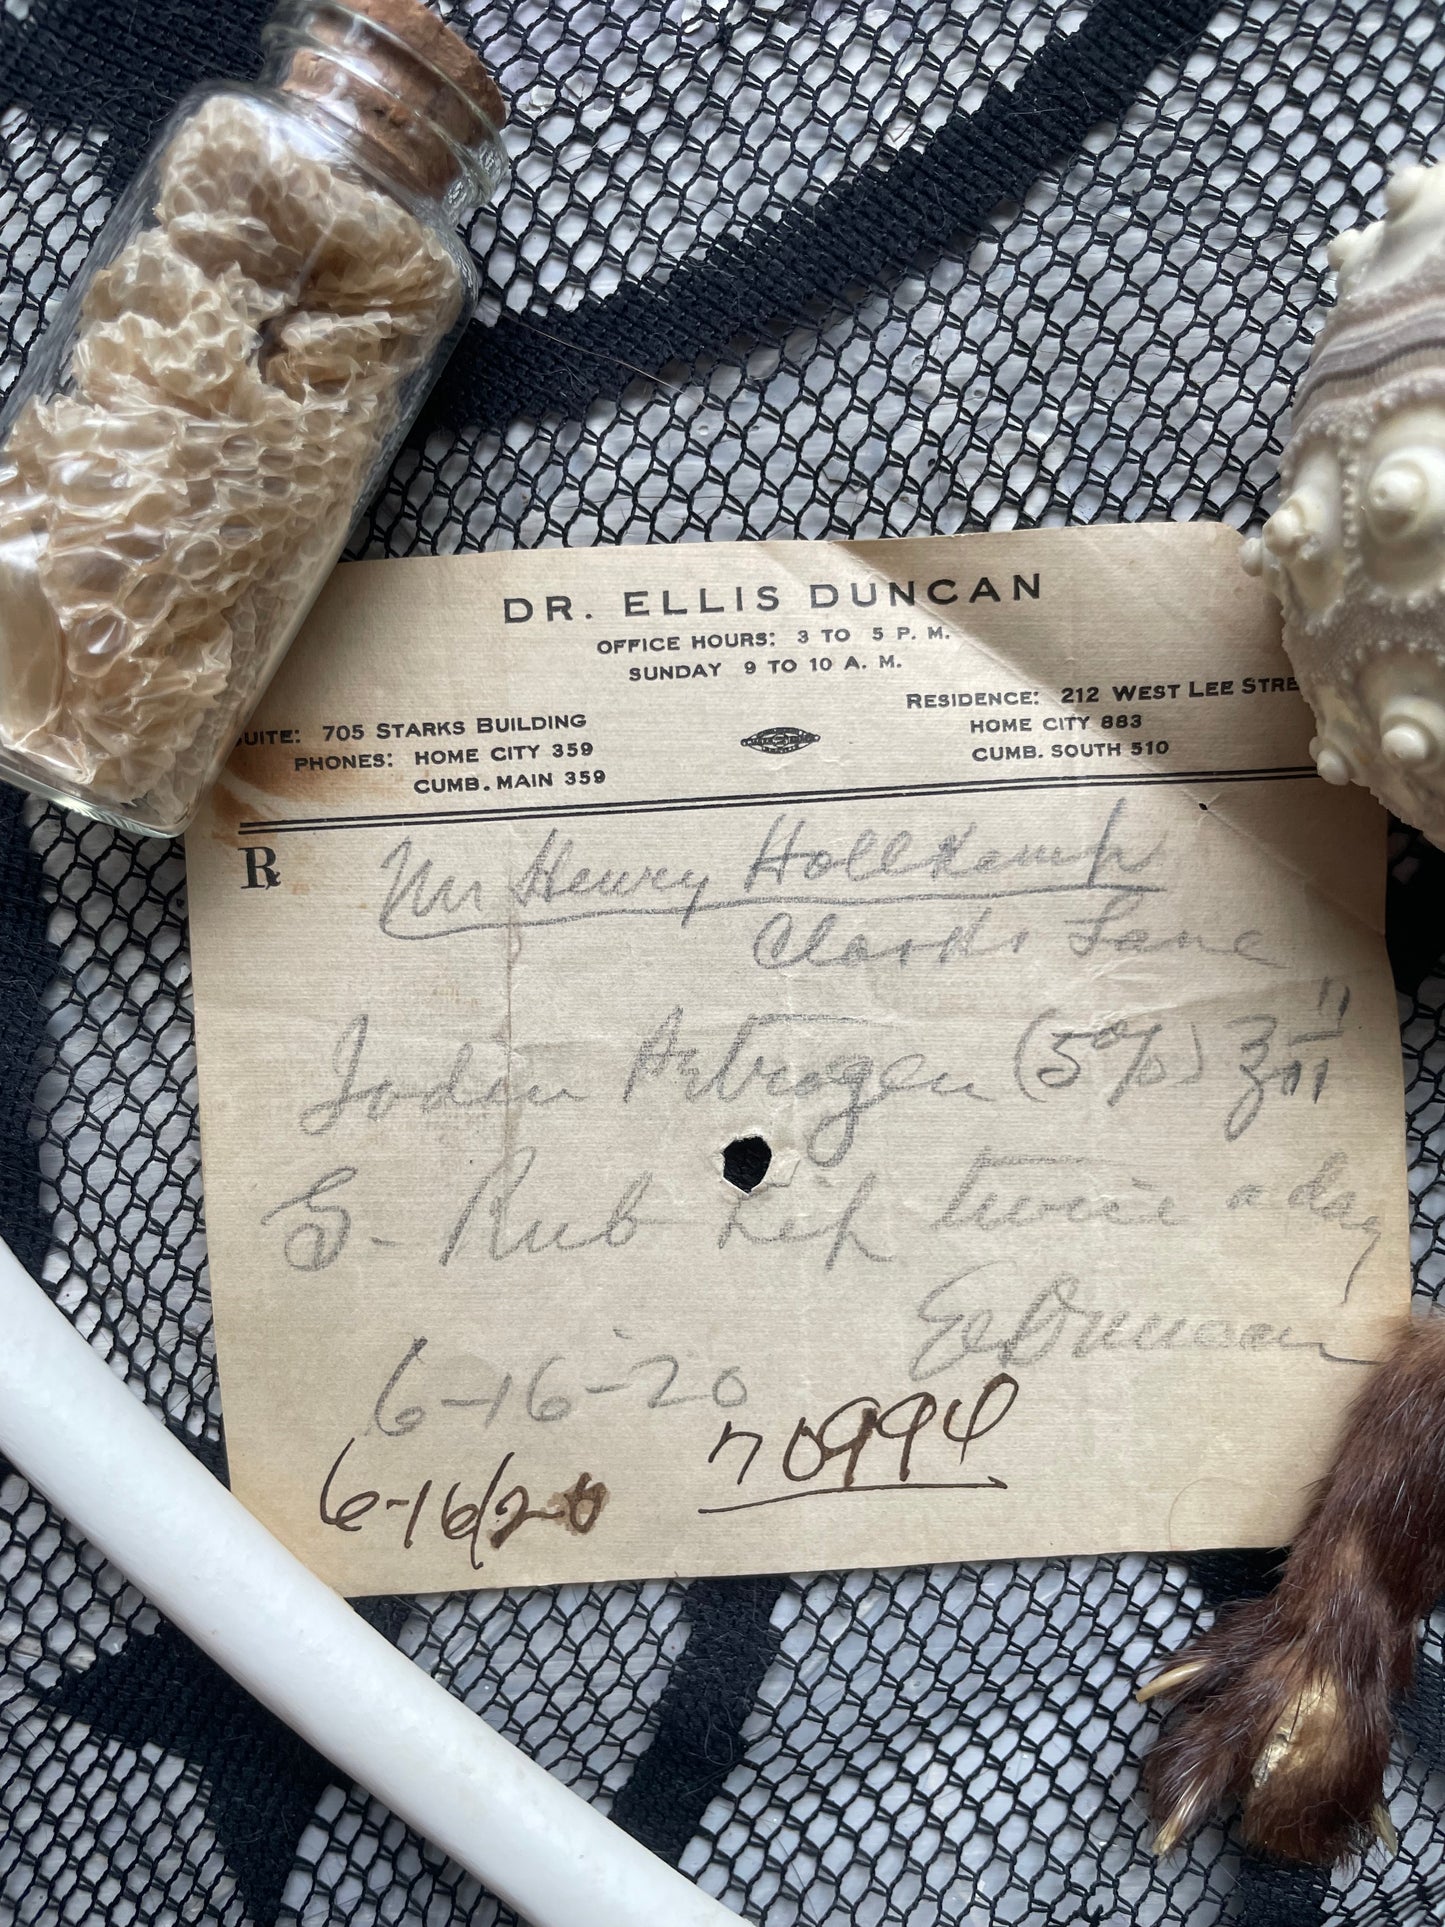 DR. ELLIS DUNCAN
OFFICE HOURS: 3 TO 5 P. M.
SUNDAY 9 TO 10 A. M.
SUITE: 705 STARKS BUILDING
PHONES: HOME CITY 359
CUMB. MAIN 359
RESIDENCE: 212 WEST LEE STRE
HOME CITY 883
CUMB. SOUTH 510
℞
Mr Henry Hollkamp
Clarks Lane
(5%) ʒ
S- Rub hip twice a day
Ellis Duncan
6-16-20
6-16/20 70994